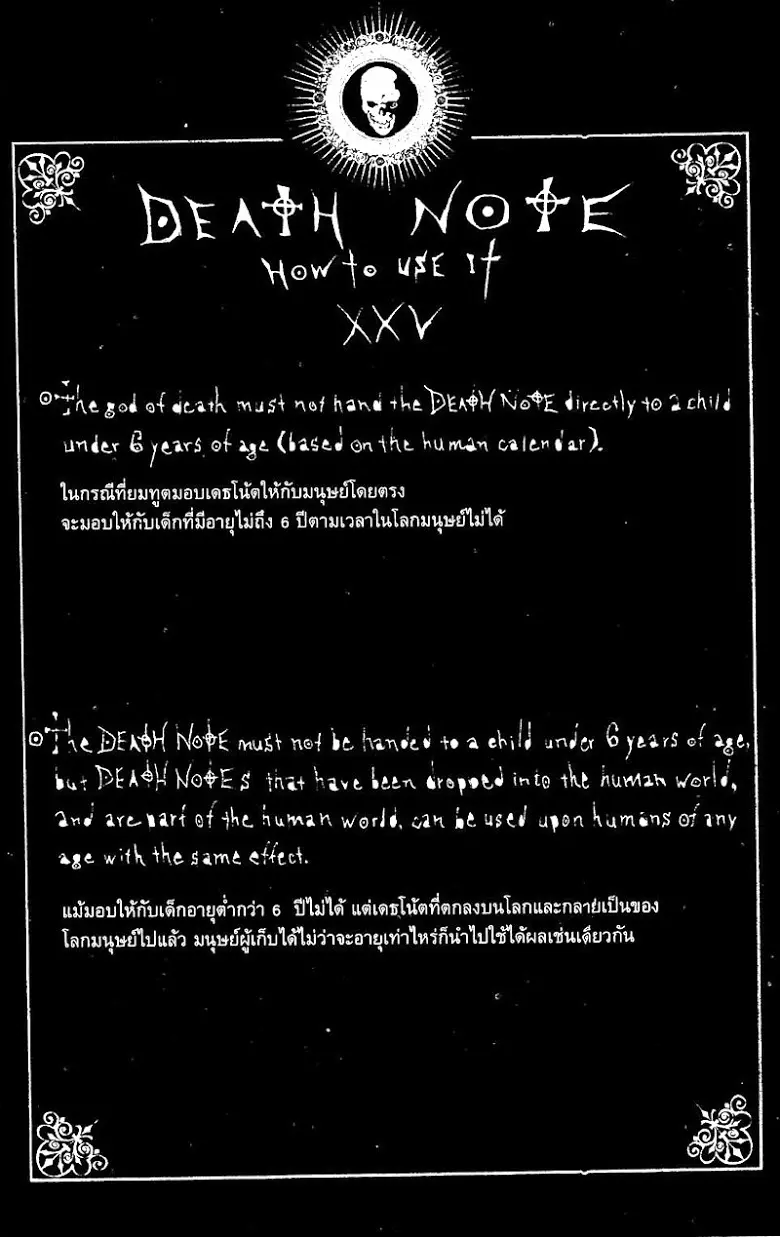 DEATH NOTE
HOW to USE It
XXV
The god of death must not hand the DEATH NOTE directly to a child
under 6 years of age (based on the human calendar).
ในกรณีที่ยมทูตมอบเดธโน้ตให้กับมนุษย์โดยตรง
จะมอบให้กับเด็กที่มีอายุไม่ถึง 6 ปีตามเวลาในโลกมนุษย์ไม่ได้
The DEATH NOTE must not be handed to a child under 6 years of age,
but DEATH NOTES that have been dropped into the human world,
and are part of the human world, can be used upon humans of any
age with the same effect.
แม้มอบให้กับเด็กอายุต่ำกว่า 6 ปีไม่ได้ แต่เดธโน้ตที่ตกลงบนโลกและกลายเป็นของ
โลกมนุษย์ไปแล้ว มนุษย์ผู้เก็บได้ไม่ว่าจะอายุเท่าไหร่ก็นำไปใช้ได้ผลเช่นเดียวกัน